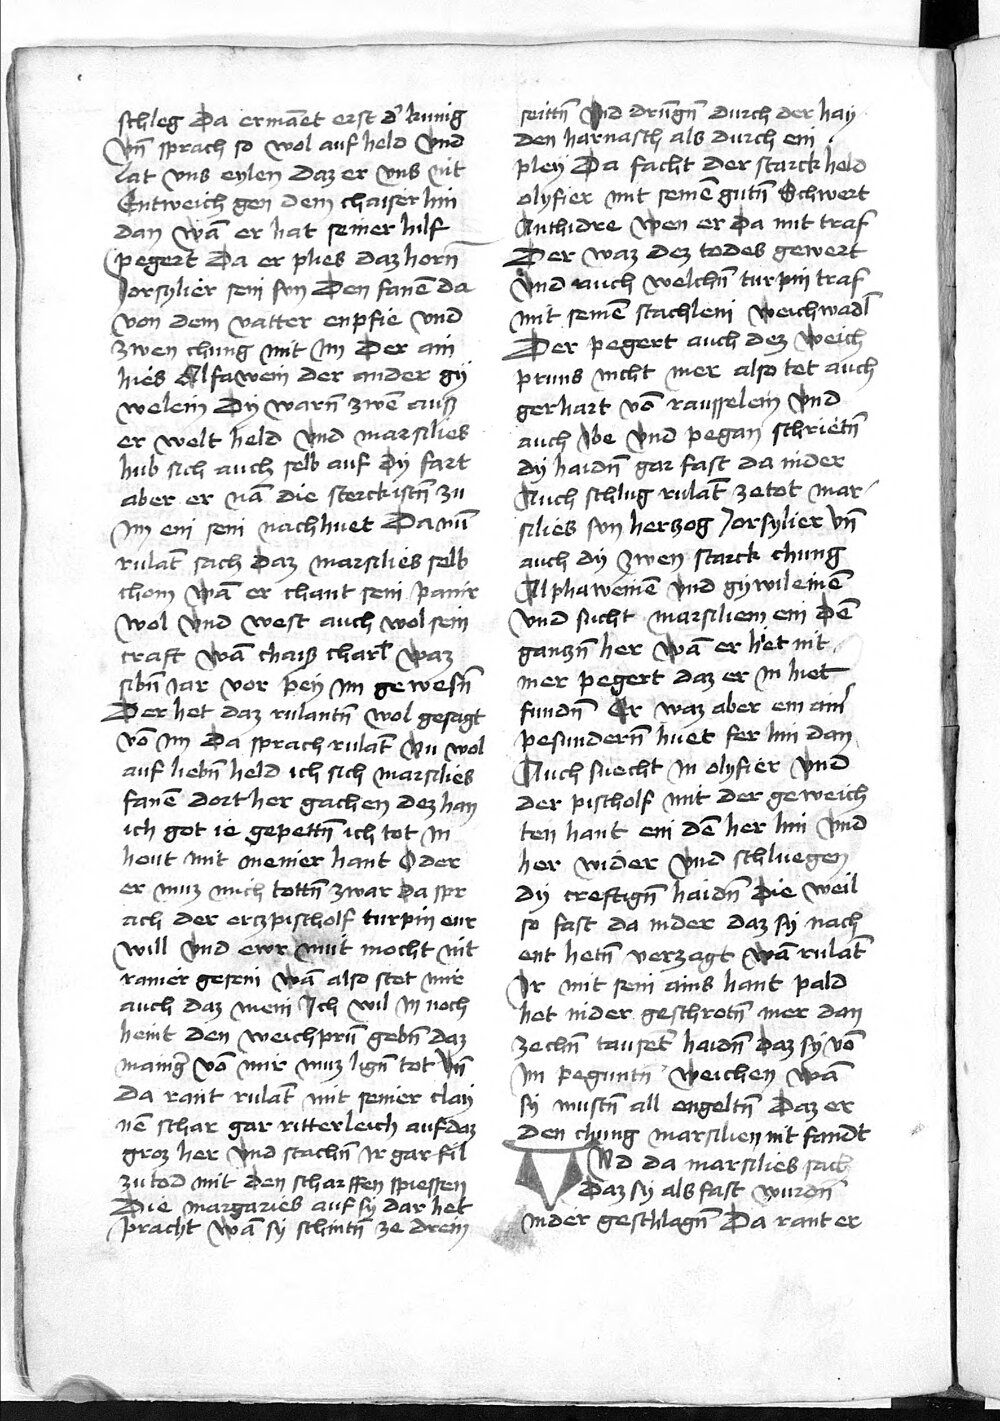 schleg Da ermañet erst d' kunig
Vn̄ sprach so wol auf held Vnd
Lat vns eylen daz er vns nit
Entweich gen dem chaiser hin
dan wā er hat seiner hilf
pegert Da er plies daz horn
Jorsylier sein sun Den fanē da
von dem vatter enpfie vnd
zwen chung mit Im Der ain
hies Alfawein der ander gy
welein Dy warn̄ zwē ausz
er welt held Vnd marsilies
hub sich auch selb auf Dy fart
aber er nā die sterckistn̄ zu
Im ein sein nachhuet Da nū
rulāt sach Daz marsilies selb
chom wā er chant sein panir
wol Vnd west auch wol sein
craft wā chaisz charl waz
sibn̄ Jar vor pey Im gewesn̄
Der het daz rulantn̄ wol gesagt
vō Im Da sprach rulāt Nu wol
auf liebn̄ held ich sich marsilies
fanē dort her gachen dez han
ich got ie gepettn̄ ich tot In
heut mit meiner hant Oder
er muz mich tottn̄ zwar Da spr
ach der erczpischolf turpin eur
will Vnd ewr muit mocht nit
rainer gesein wā also stet mir
auch daz mein Ich wil In noch
heint den weichprūn gebn̄ daz
maing' vō mir muz lign̄ tot Vn̄
Da rant rulāt mit seiner clay
nē schar gar ritterleich auf daz
groz her Vnd stachn̄ Ir gar fil
zu tod mit den scharffen spiessen
Die margaries auf sy dar het
pracht wā sy schintn̄ ze drein
seittn̄ Vnd drungn̄ durch der hay
den harnasch als durch ein
pley Da facht der starck held
olyfier mit seinē gutn̄ Schwert
Anthidre wen er Da mit traf
Der waz dez todes gewert
Vnd auch welchn̄ turpin traf
mit seinē stachlein weichwadl
Der pegert auch dez weich
pruns nicht mer also tet auch
gerhart vō rausselein Vnd
auch Ibe Vnd pegan schrietn̄
dy haidn̄ gar fast da nider
Auch schlug rulāt ze tot mar
silies sun herzog Jorsylier Vn̄
auch dy zwen starck chung
Alphaweinē Vnd gywileinē
Vnd sucht marsiliem ein Dē
ganczn̄ her wā er hiet nit
mer pegert daz er In hiet
fundn̄ Er waz aber ein ain'
pesundern̄ huet fer hin dan
Auch suecht In olyfier Vnd
der pischolf mit der geweich
ten hant ein dē her hin Vnd
her wider Vnd schluegen
dy creftign̄ haidn̄ Die weil
so fast da nider daz sy nach
ent hetn̄ verzagt wā rulāt
Ir mit sein ains hant pald
het nider geschrotn̄ mer dan
zechn̄ tausēt haidn̄ daz sy vō
Im peguntn̄ weichen wā
sy mustn̄ all engeltn̄ Daz er
Den chung marsilien nit fandt
VNd da marsilies sach
Daz sy als fast wurdn̄
nider geschlagn̄ Da rant er